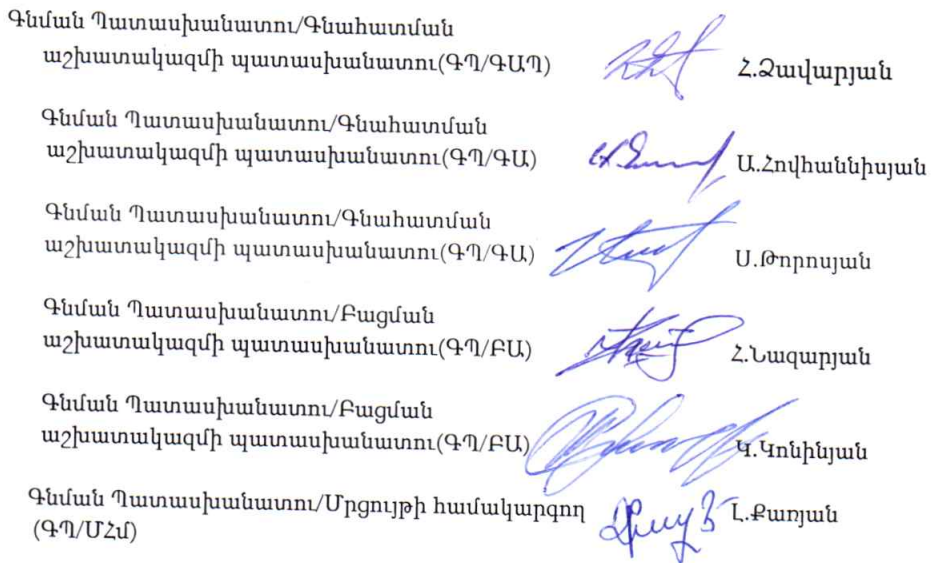 Գնման Պատասխանատու/Գնահատման
աշխատակազմի պատասխանատու(ԳՊ/ԳԱՊ) Հ.Զավարյան
Գնման Պատասխանատու/Գնահատման
աշխատակազմի պատասխանատու(ԳՊ/ԳԱ) Ա.Հովհաննիսյան
Գնման Պատասխանատու/Գնահատման
աշխատակազմի պատասխանատու(ԳՊ/ԳԱ) Ս.Թորոսյան
Գնման Պատասխանատու/Բացման
աշխատակազմի պատասխանատու(ԳՊ/ԲԱ) Հ.Նազարյան
Գնման Պատասխանատու/Բացման
աշխատակազմի պատասխանատու(ԳՊ/ԲԱ) Կ.Կոնինյան
Գնման Պատասխանատու/Մրցույթի համակարգող Լ.Քառյան
(ԳՊ/ՄՀմ)